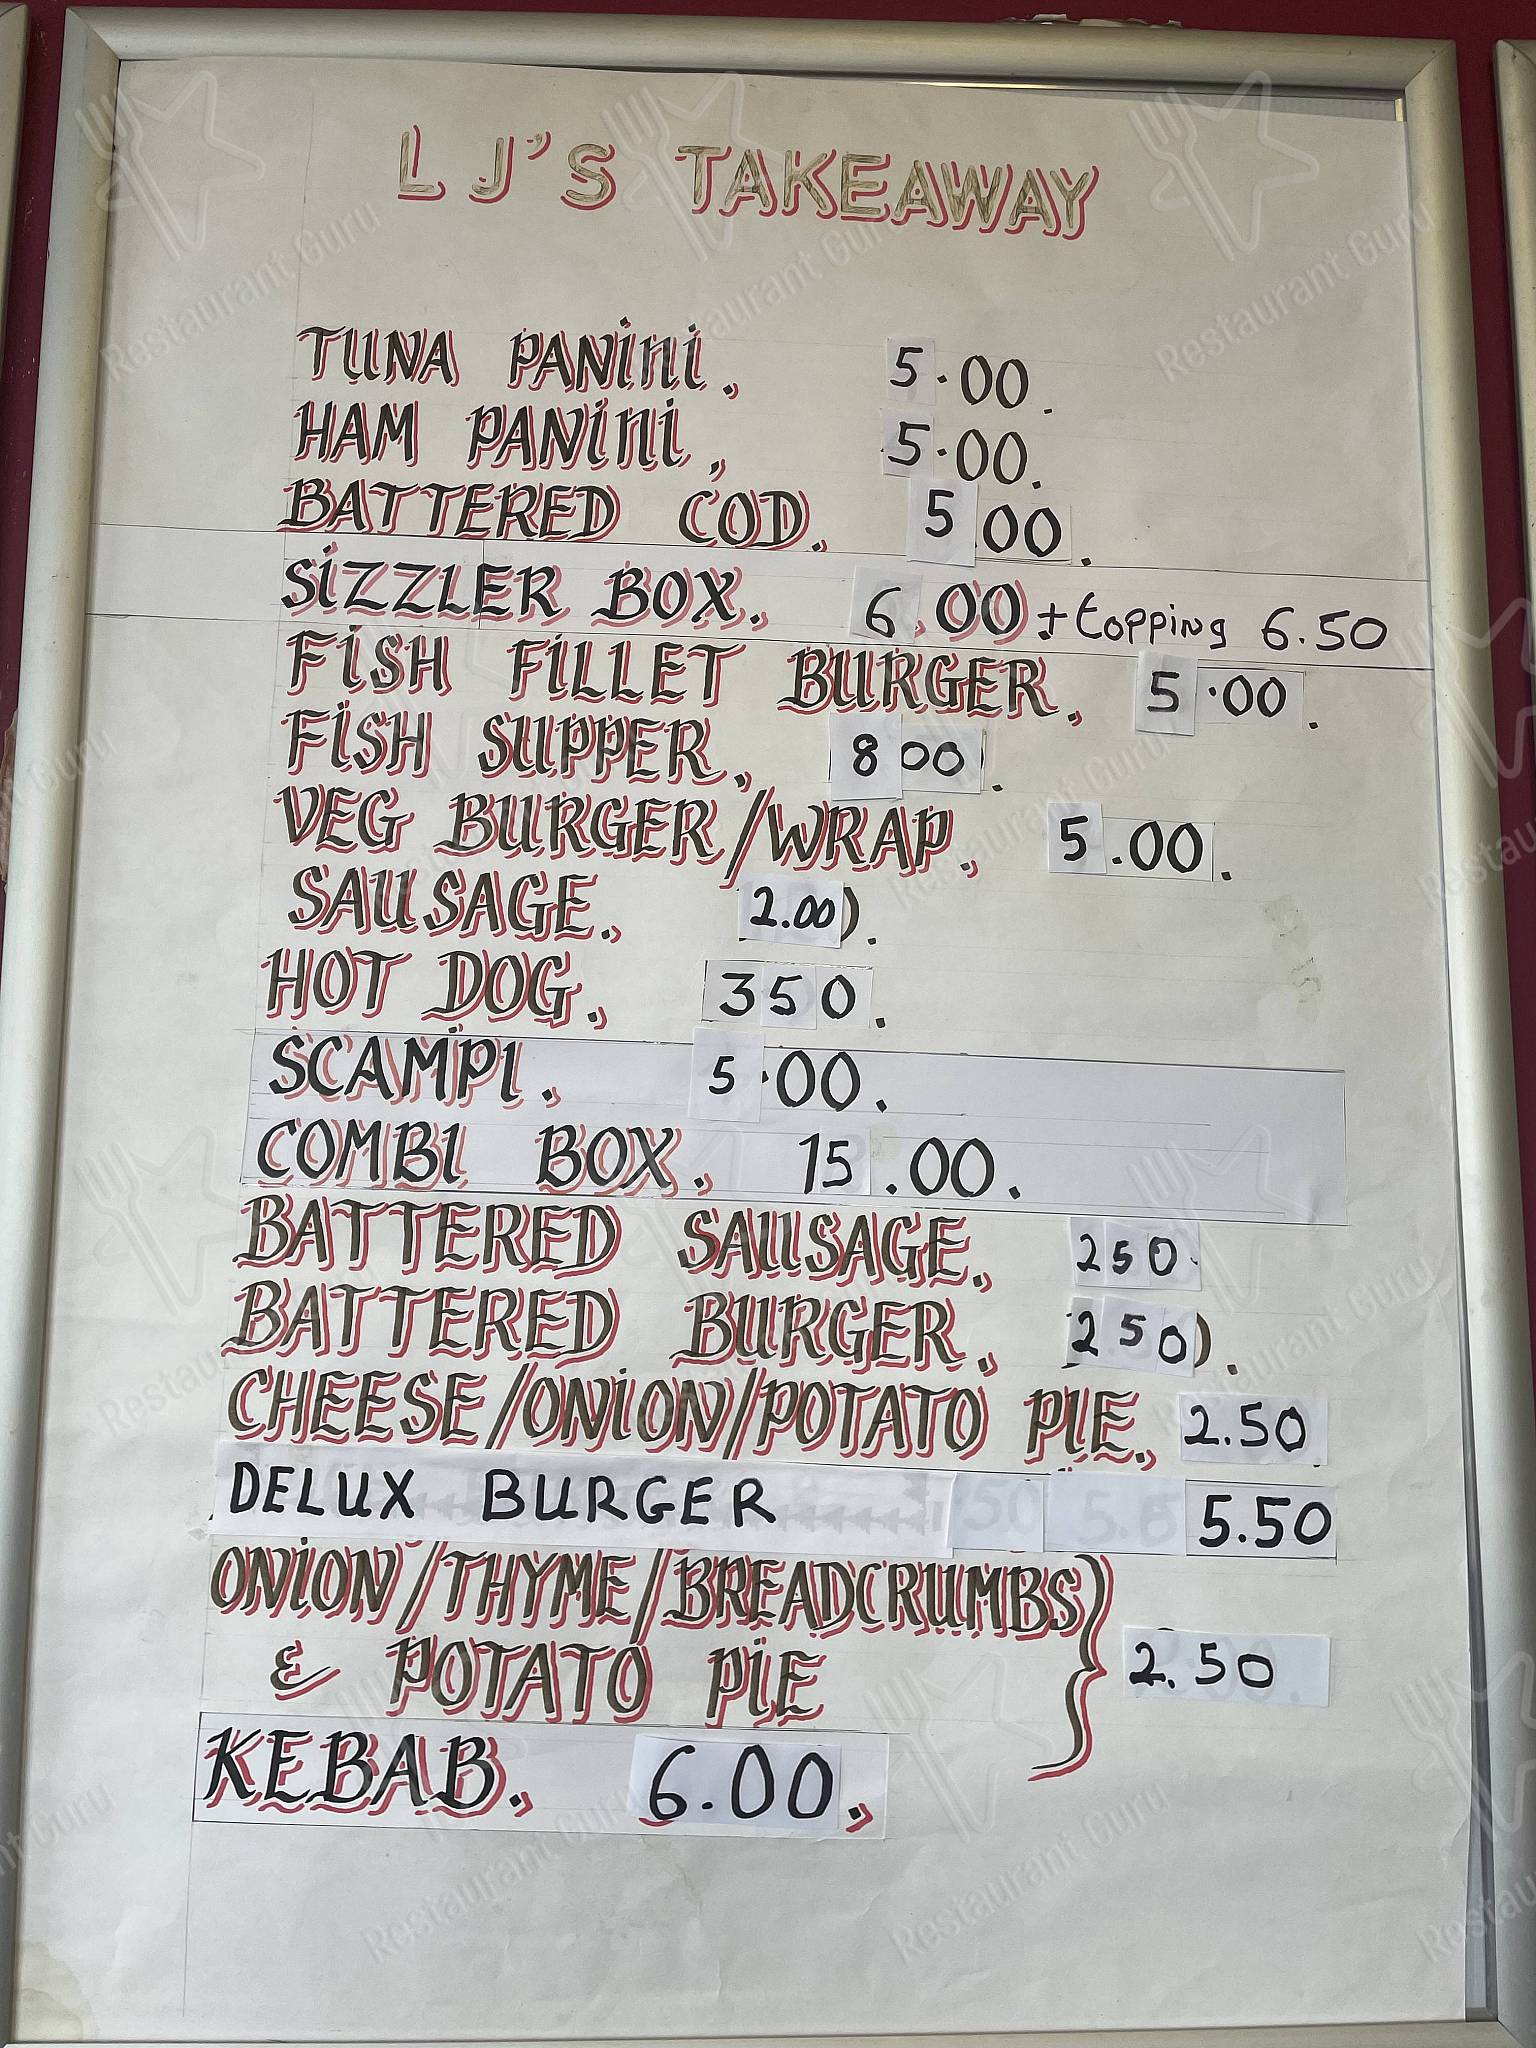 L J'S TAKEAWAY
TUNA PANiNi. 5.00.
HAM PANiNi. 5.00.
BATTERED COD. 5.00.
SiZZLER BOX. 6.00 + topping 6.50
FiSH FiLLET BURGER. 5.00.
FiSH SUPPER. 8 00.
VEG BURGER/WRAP. 5.00.
SAUSAGE. 2.00).
HOT DOG. 350.
SCAMPI. 5.00.
COMBI BOX. 15.00.
BATTERED SAUSAGE. 250.
BATTERED BURGER. 250).
CHEESE/ONiON/POTATO PIE. 2.50
DELUX BURGER 5.50
ONiON/THYME/BREADCRUMBS
& POTATO PiE } 2.50
KEBAB. 6.00.
Restaurant Guru